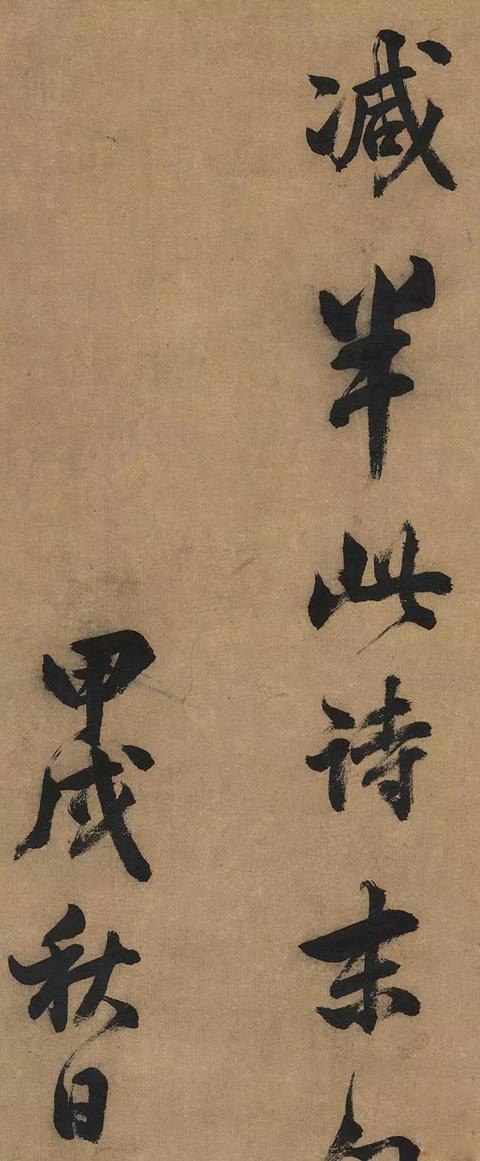 減半此詩末句
甲戌秋日